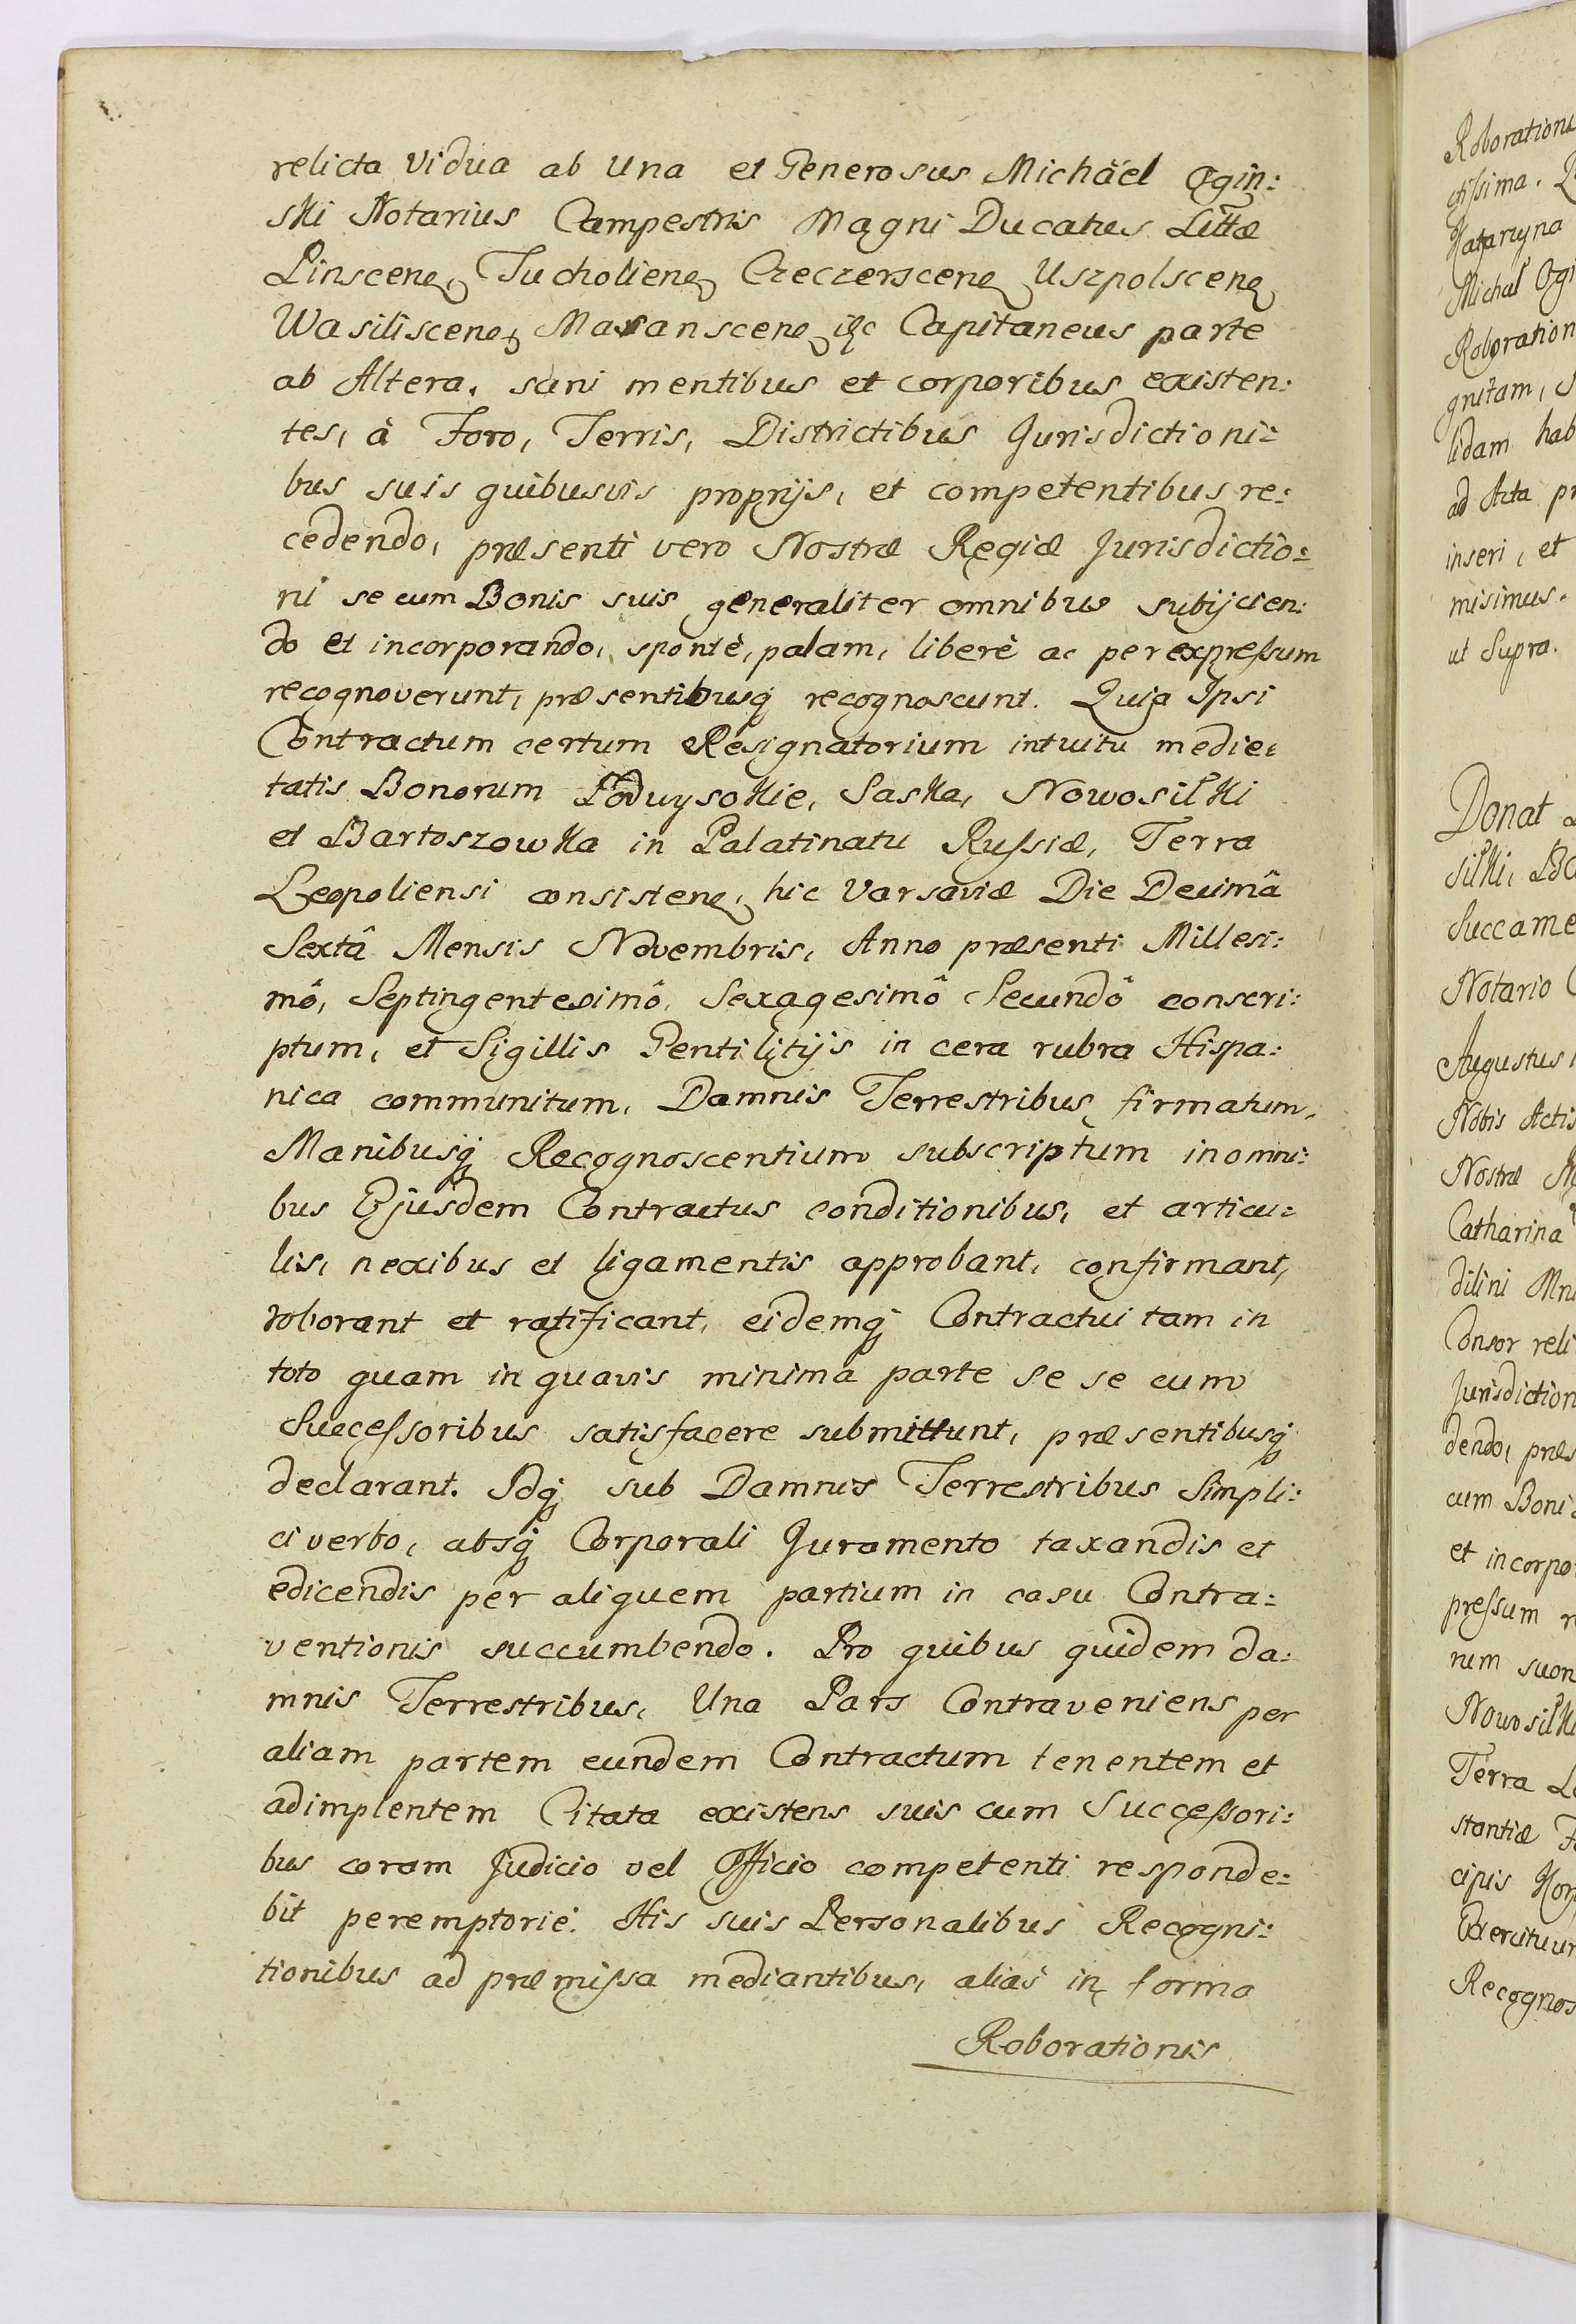 relicta Vidua ab Una et Generosus Michäel Ogin:
ski Notarius Campestris Magni Ducatus Littæ
Pinscen, Tucholien, Czeczerscen, Uszpolscen,
Wasiliscen, Maranscen, &c Capitaneus parte
ab Altera, sani mentibus et corporibus existen:
tes, à Foro, Terris, Districtibus Jurisdictioni:
bus suis quibusvis proprijs, et competentibus re:
cedendo, præsenti vero Nostræ Regiæ Jurisdictio:
ni se cum Bonis suis generaliter omnibus subijcien:
do et incorporando, spontè, palam, liberè ac per expressum
recognoverunt, præsentibusq recognoscunt. Quia Ipsi
Contractum certum Resignatorium intuitu medie:
tatis Bonorum Podwysokie, Saska, Nowosiłki
et Bartoszowka in Palatinatu Russiæ, Terra
Leopoliensi consisten, hic Varsaviæ Die Decimâ
Sextâ Mensis Novembris, Anno præsenti Millesi:
mô, Septingentesimô, Sexagesimô Secundô conscri:
ptum, et Sigillis Gentilitijs in cera rubra Hispa:
nica communitum, Damnis Terrestribus firmatum,
Manibusq Recognoscentium subscriptum in omni:
bus Ejusdem Contractus conditionibus, et articu:
lis, nexibus et ligamentis approbant, confirmant,
roborant et ratificant, eidemq Contractui tam in
toto quam in quavis minima parte se se cum
Successoribus satisfacere submittunt, præsentibusq
declarant. Idq sub Damnis Terrestribus Simpli:
ci verbo, absq Corporali Juramento taxandis et
edicendis per aliquem partium in casu Contra:
ventionis succumbendo. Pro quibus quidem da:
mnis Terrestribus, Una Pars Contraveniens per
aliam partem eundem Contractum tenentem et
adimplentem Citata existens suis cum Successori:
bus coram Judicio vel Officio competenti responde:
bit peremptoriè. His suis Personalibus Recogni:
tionibus ad præmissa mediantibus, alias in forma
Roborationis
Roborationis
ctissima.
Katarzyna
Michał Ogi
Roboration
gnitam, 
lidam hab
ad Acta pr
inseri, et
misimus.
ut Supra.
Donat
siłki, 
Succame
Notario C
Augustus
Nobis Actis
Nostræ
Catharina
dilini
Consor reli
Jurisdiction
dendo, præs
cum Boni
et incorpo
pressum r
rum suor
Nowosiłki
Terra Le
stantiæ
cipis
Exercituum
Recognos